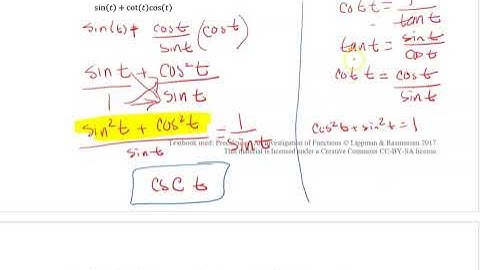 sin(t) + cot(t)cos(t)
sin(t) + cost/sint (cost)
sint/1 + cos²t/sint
sin²t + cos²t/sint = 1/sint
csc t
cot t = 1/tant
tant = sint/cost
cot t = cost/sint
cos²t + sin²t = 1
Textbook used: Precalculus: An Investigation of Functions © Lippman & Rasmussen 2017.
This material is licensed under a Creative Commons CC-BY-SA license.